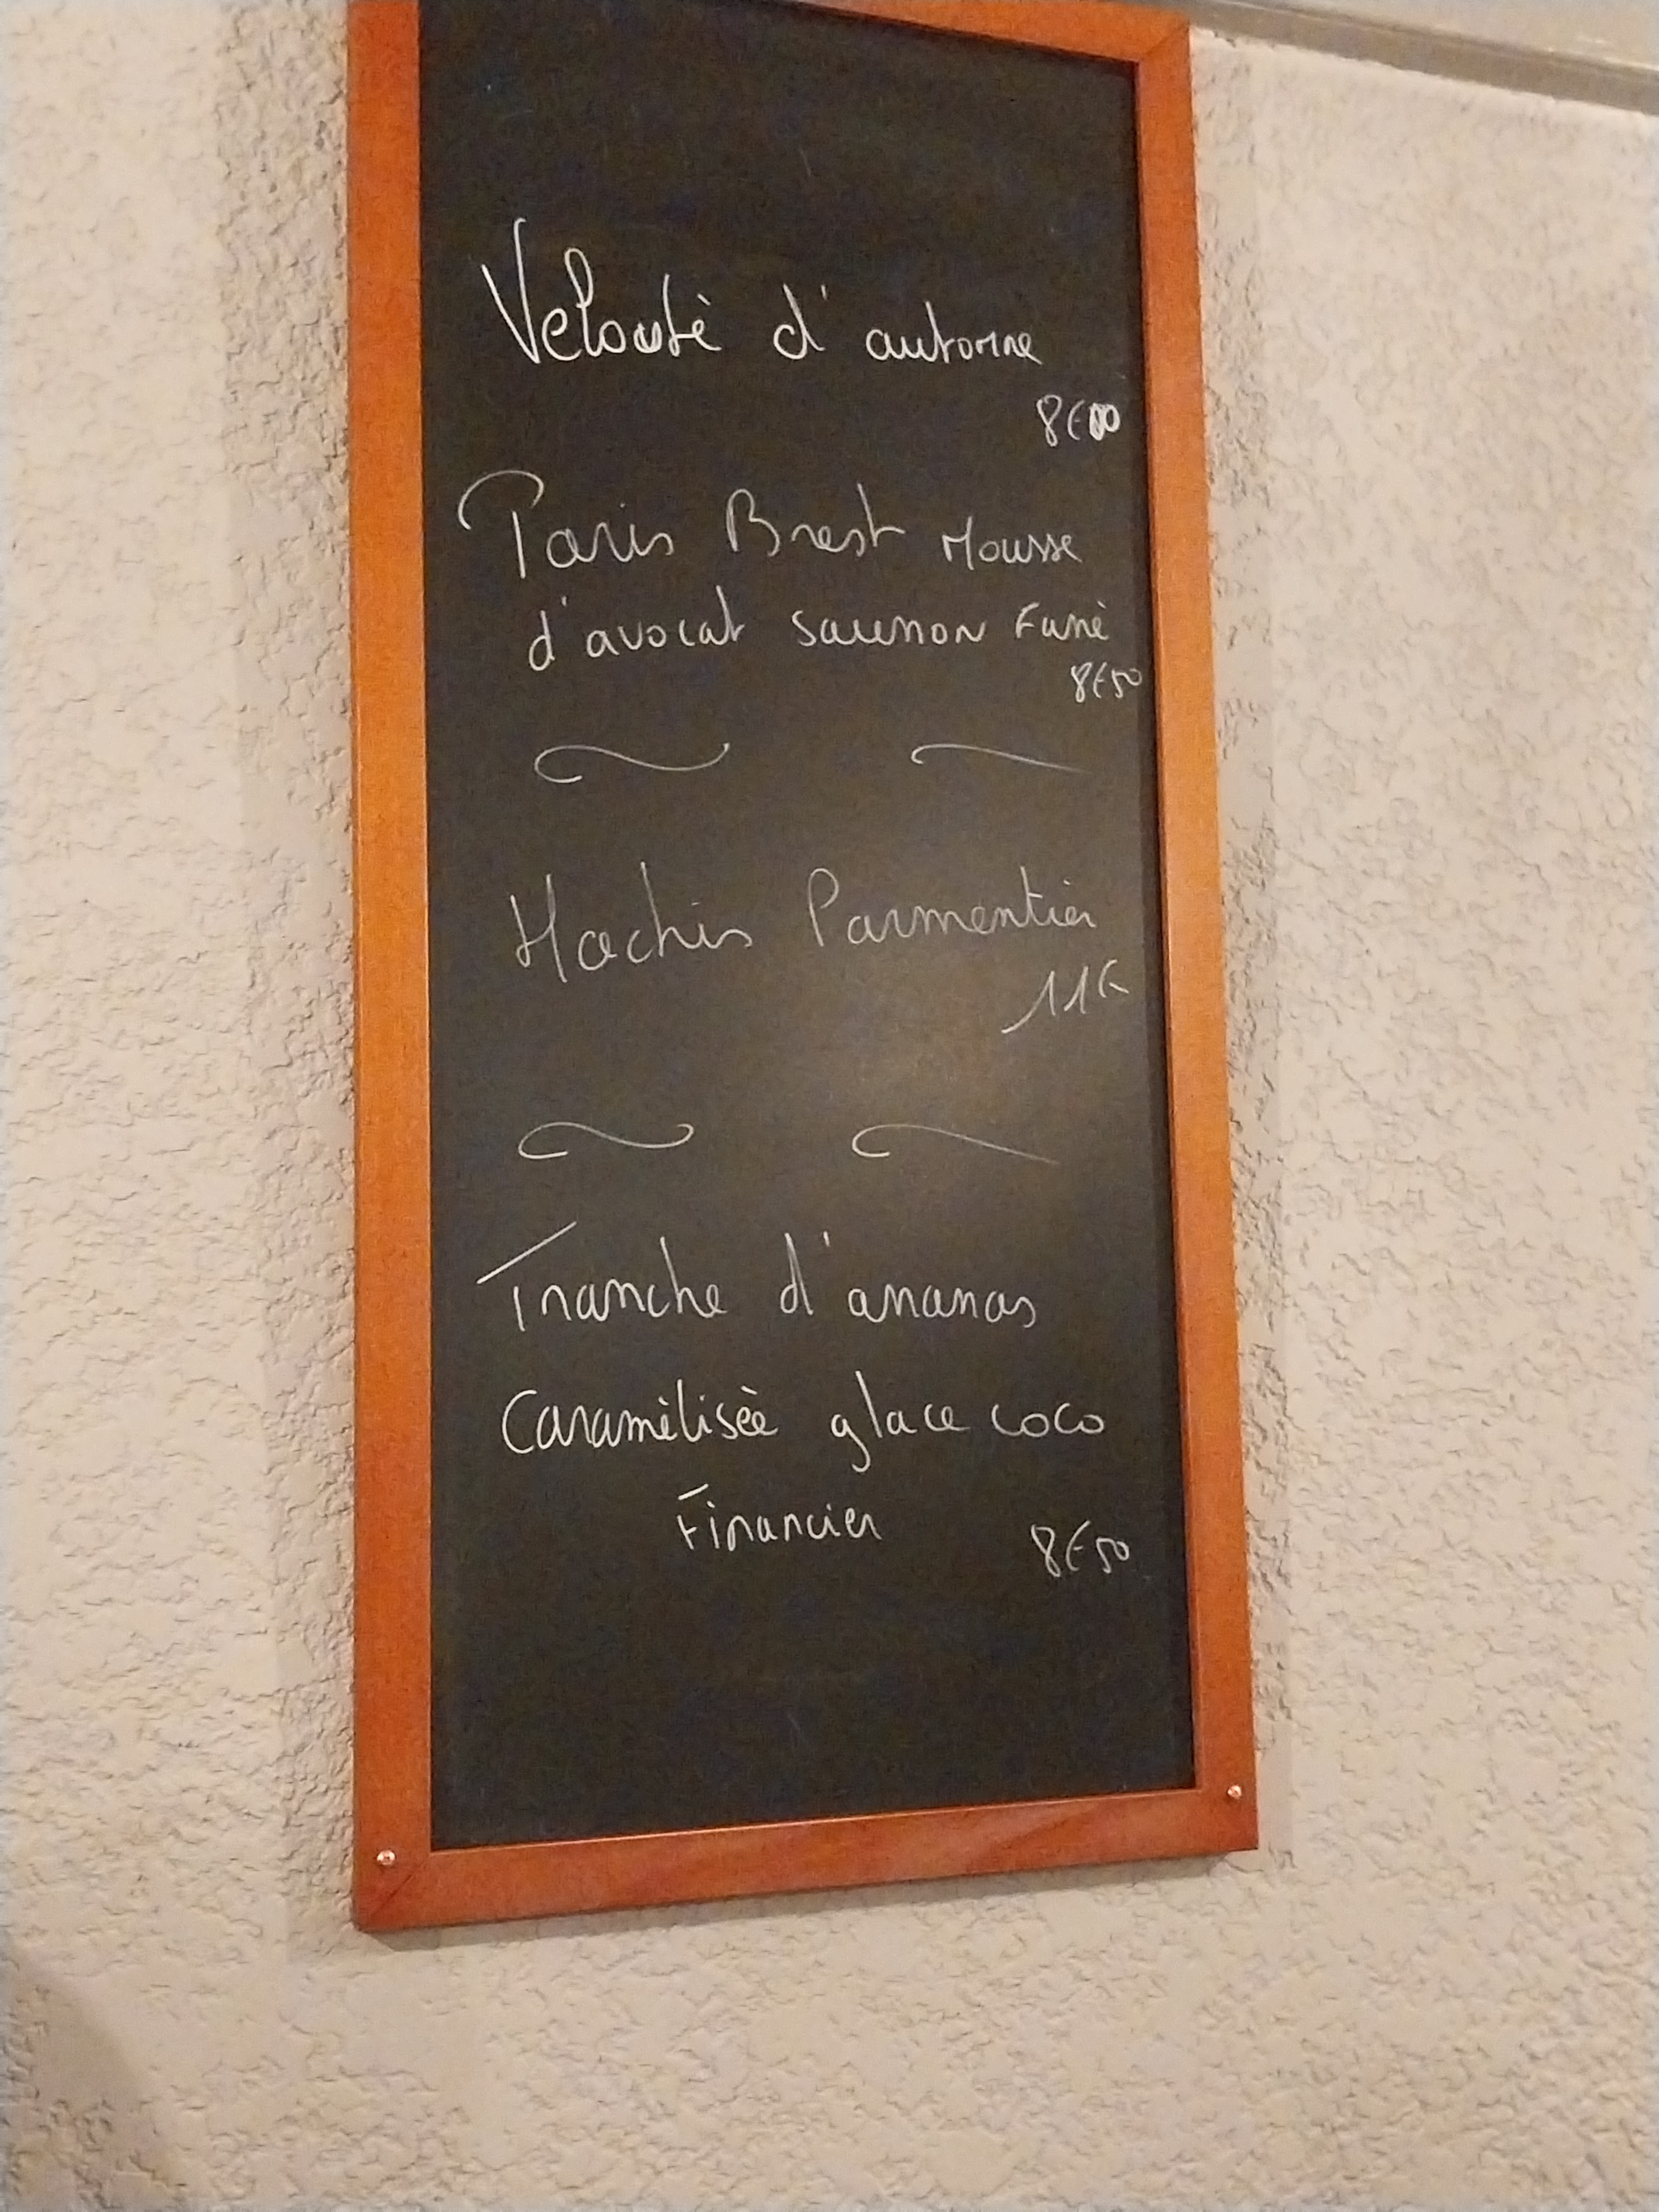 Velouté d'automne
8€00
Paris Brest Mousse
d'avocat saumon Fumé
8€50
Hachis Parmentier
11€
Tranche d'ananas
Caramélisée glace coco
Financier
8€50